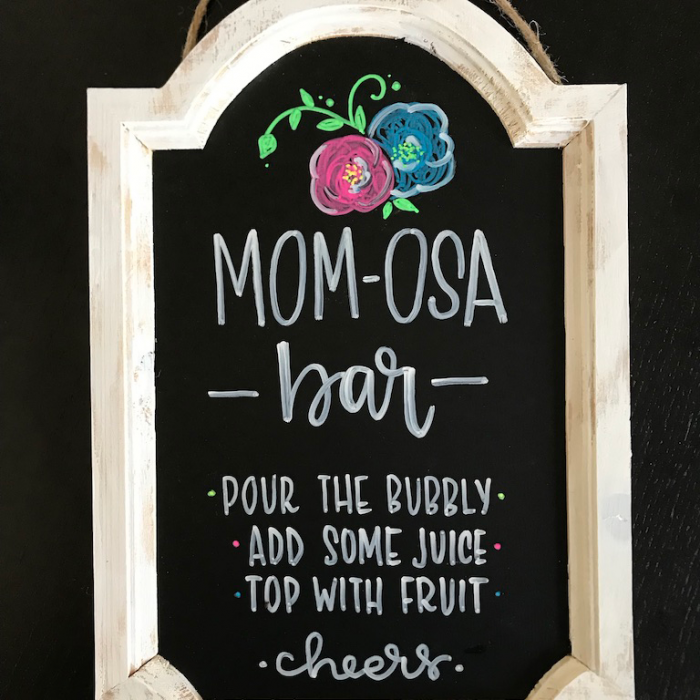 MOM-OSA
- bar -
• POUR THE BUBBLY •
• ADD SOME JUICE •
• TOP WITH FRUIT •
• cheers •